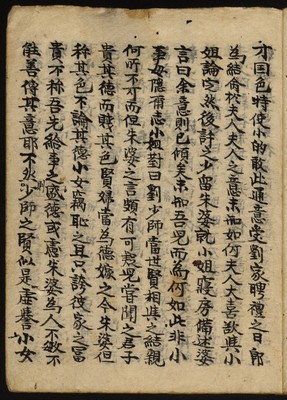 才国色特使小的敢此通意受劉家聘禮之日郎
爲結於夫人夫人之意未知如何夫人大喜欲與小
姐論定然後討之少留朱婆就小姐寢房備述婆
言曰余意則已傾矣未知吾兒而爲何如此非小
事毋隱爾志小姐對曰劉少師當世賢相與之結親
何所不可而但朱婆之言頗有可惑兒嘗聞之君子
貴其德而賤其色賢婦當爲德嫁之今朱婆但
称其色不論其德小女竊恥之且只誇彼家之冨
貴不称吾先給事之盛德或慮朱婆爲人不敏不
能善傳其意耶不然則少師之賢似是虛譽小女